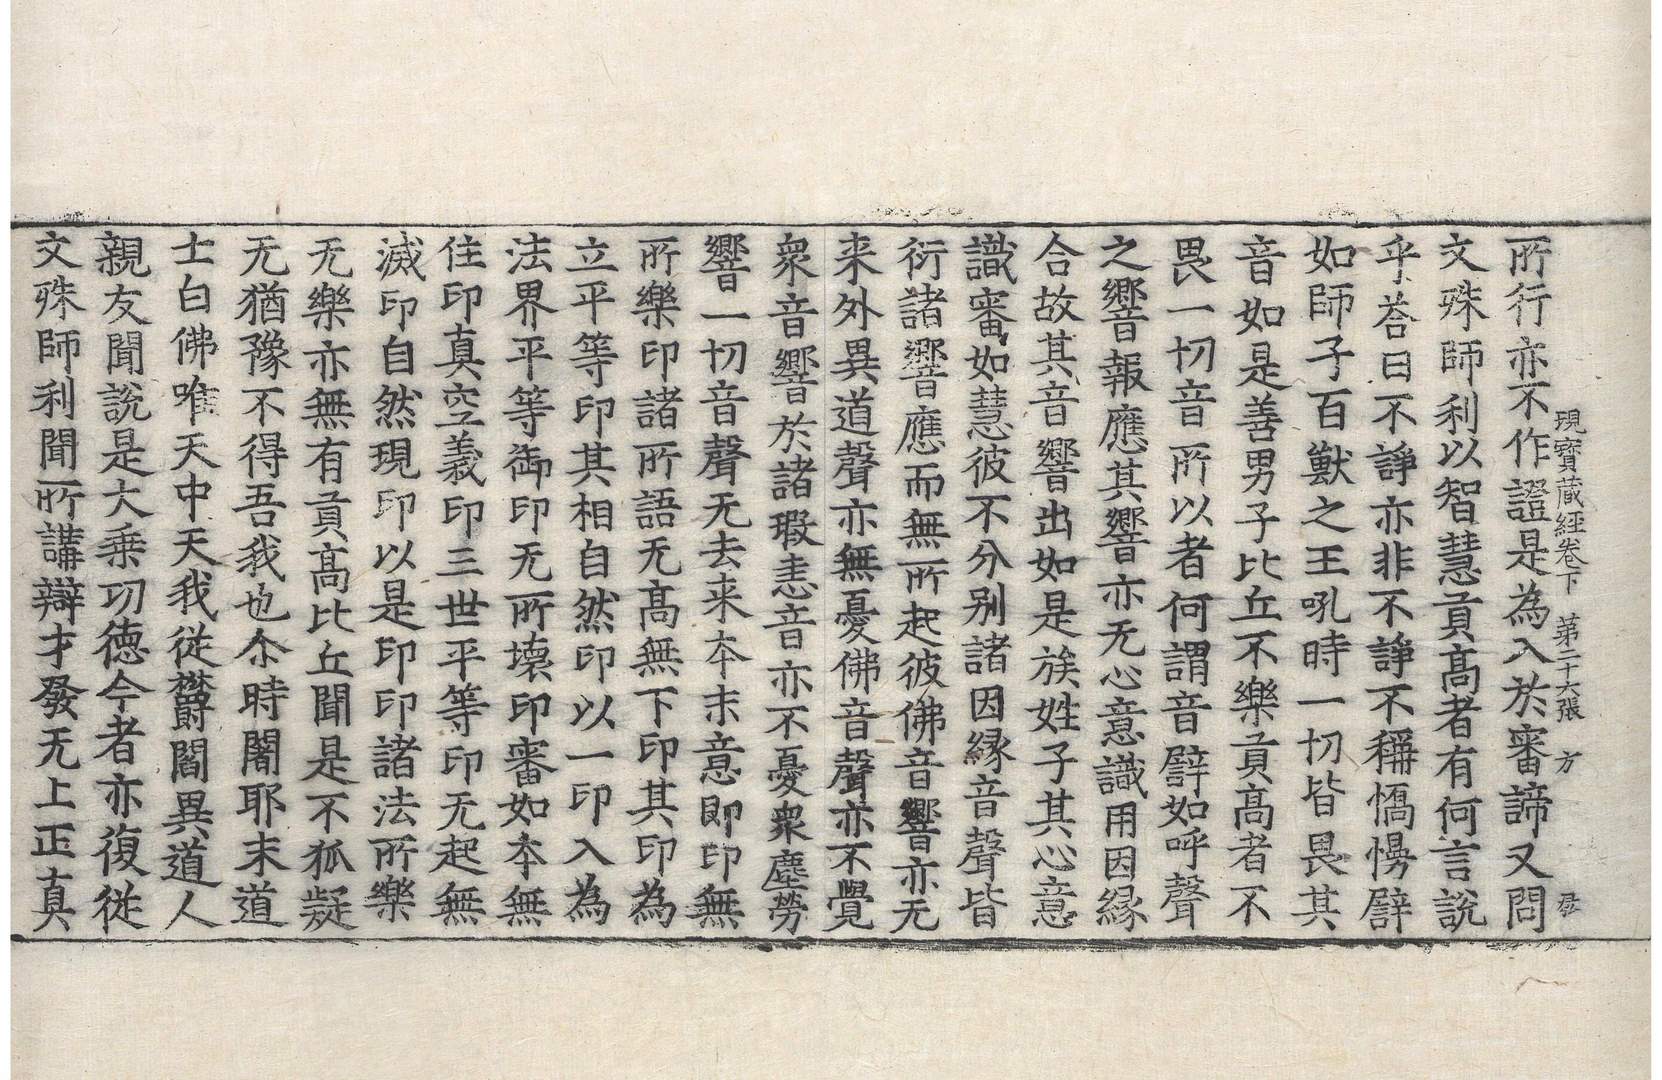 現寶藏經卷下　第二十六張　方
所行亦不作證是為入於審諦又問
文殊師利以智慧貢高者有何言說
乎荅曰不諍亦非不諍不稱憍慢譬
如師子百獸之王吼時一切皆畏其
音如是善男子比丘不樂貢高者不
畏一切音所以者何謂音譬如呼聲
之響報應其響亦无心意識用因緣
合故其音響出如是族姓子其心意
識審如慧彼不分別諸因緣音聲皆
衍諸響音應而無所起彼佛音響亦无
来外異道聲亦無憂佛音聲亦不覺
衆音響於諸瑕恚音亦不憂衆塵勞
響一切音聲无去来夲末意即印無
所樂印諸所語无髙無下印其印為
立平等印其相自然印以一印入為
法界平等御印无所壞印審如夲無
住印真空義印三世平等印无起無
滅印自然現印以是印印諸法所樂
无樂亦無有貢髙比丘聞是不狐疑
无猶豫不得吾我也尒時闍耶末道
士白佛唯天中天我從欝爵閻異道人
親友聞說是大乗功德今者亦復從
文殊師利聞所講辯才發无上正真